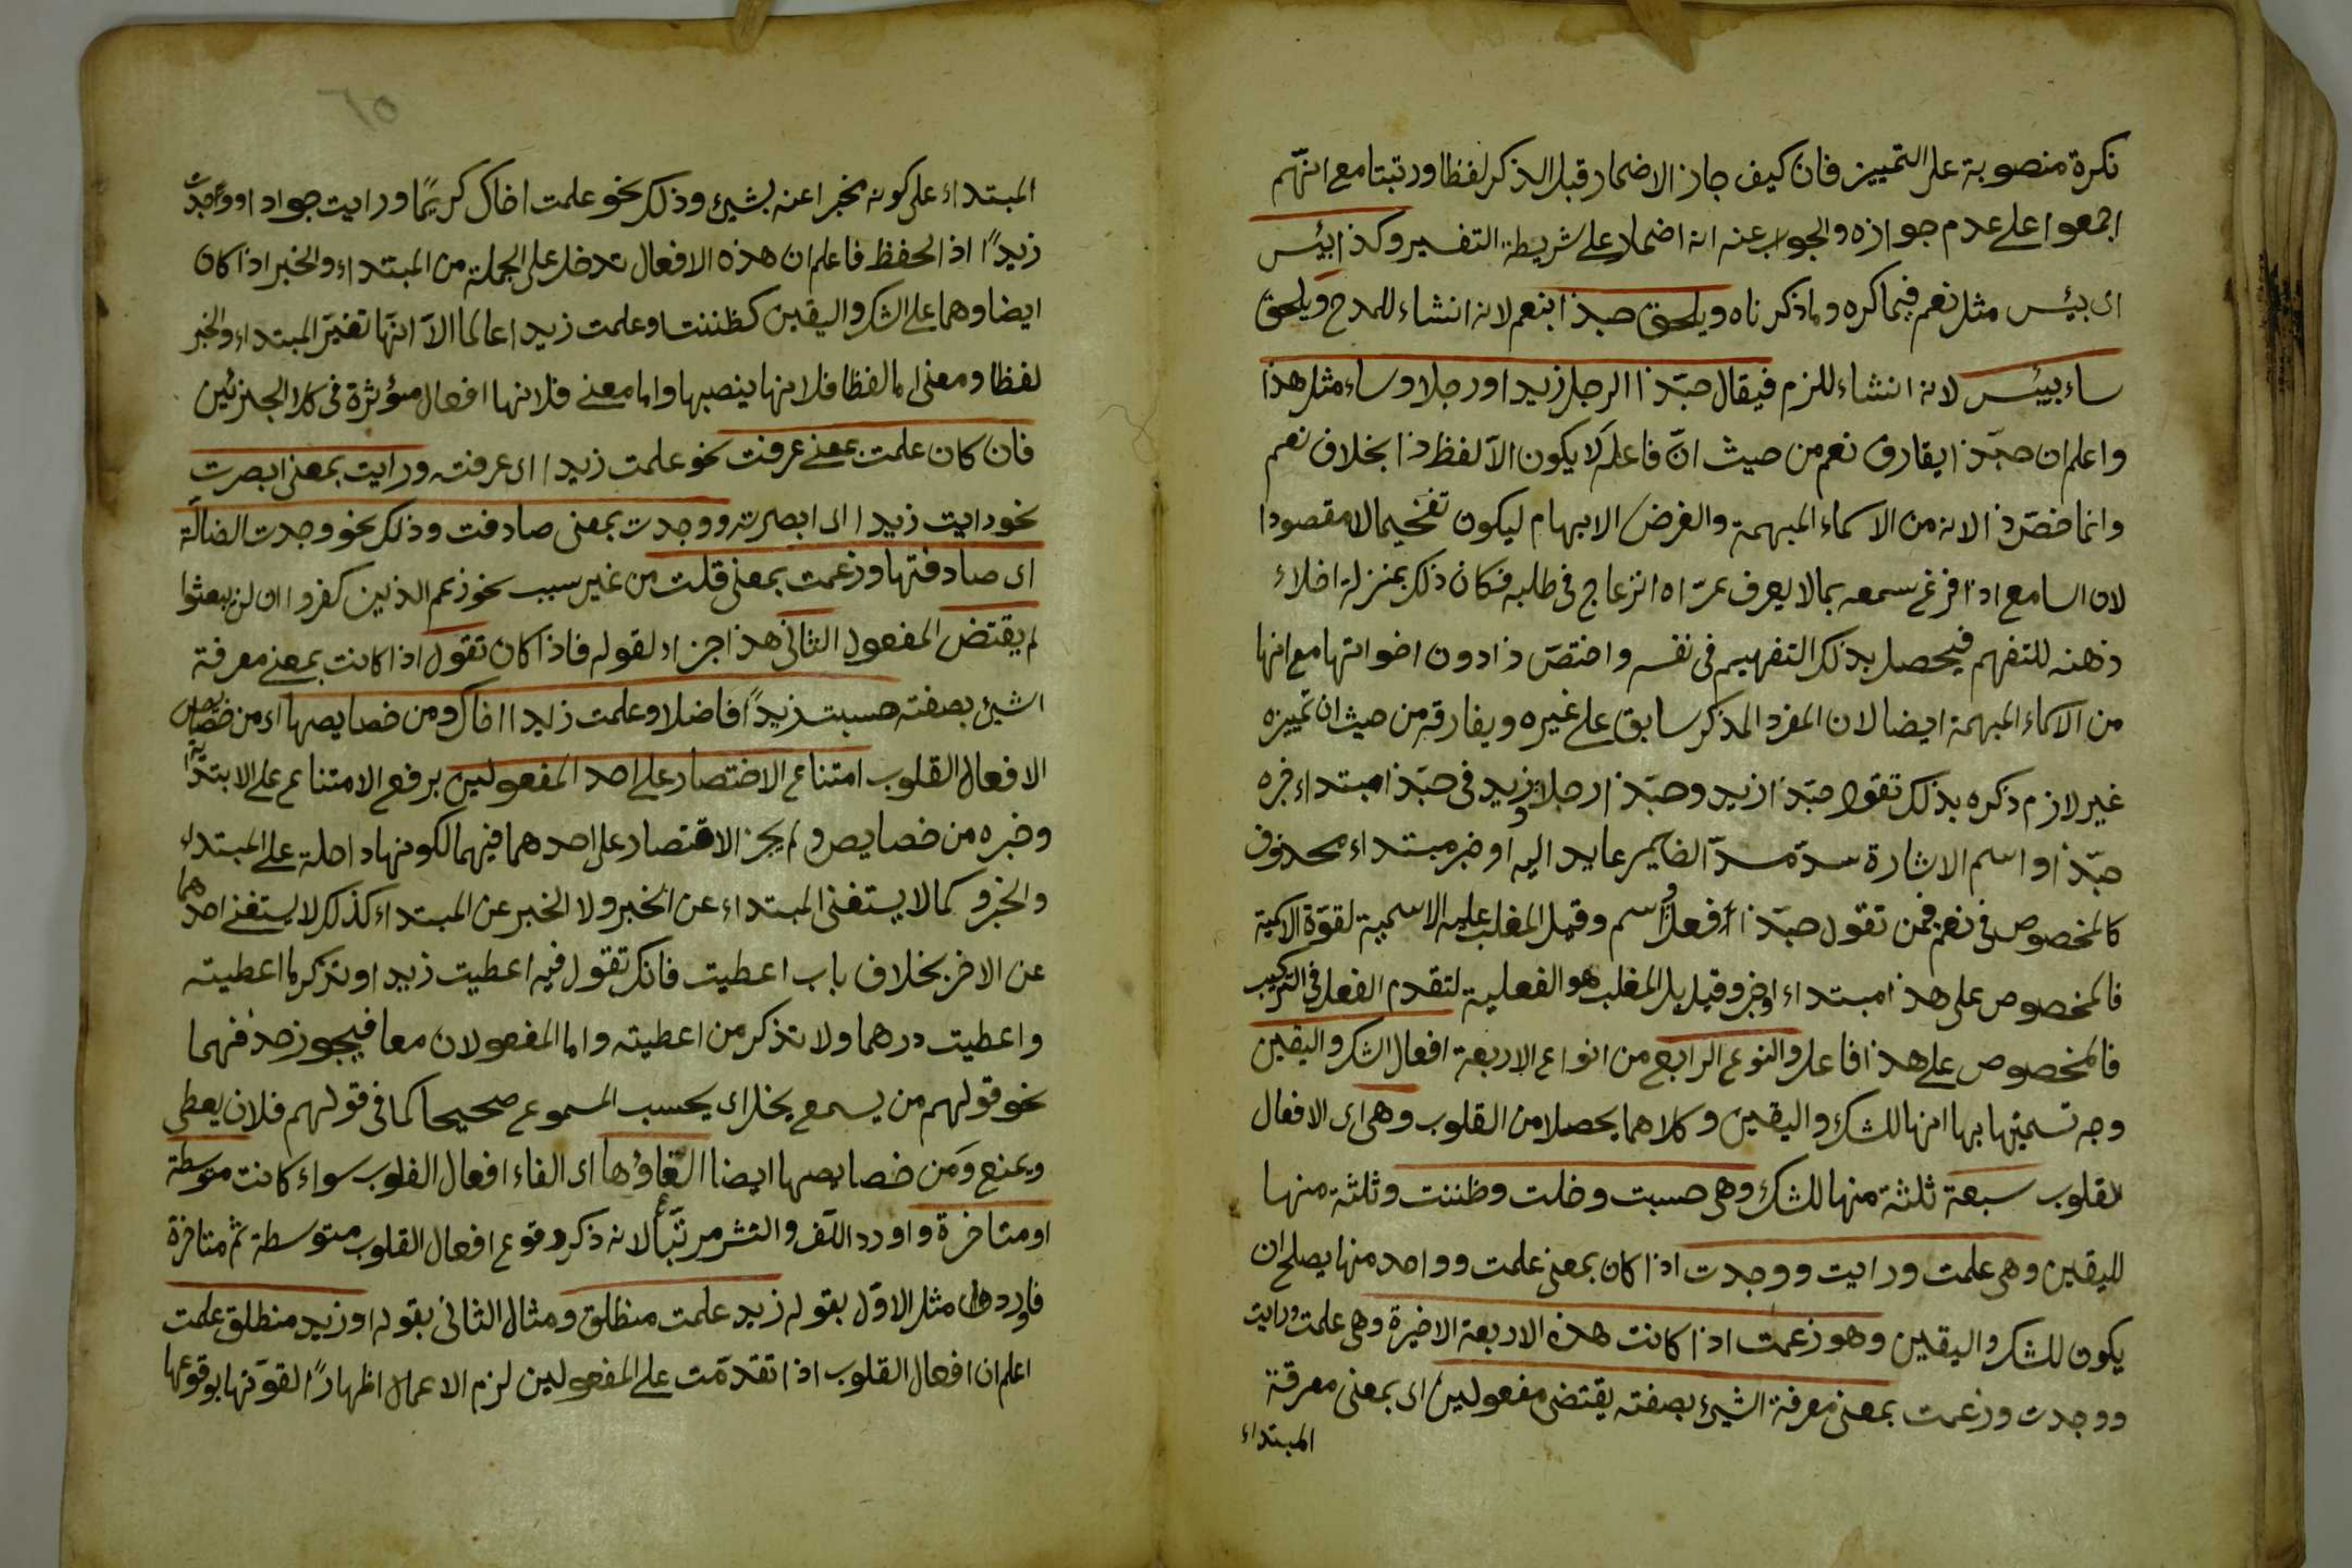 نكرة منصوبة على التمييز فان كيف جاز الاضمار قبل الذكر لفظا ورتبتا مع انهم
اجمعوا على عدم جوازه والجواب عنه انه اضمار على شريطة التفسير وكذا بئس
اى بئس مثل نعم فيما كره وما ذكرناه ويلحق حبذا بنعم لانه انشاء للمدح ويلحق
ساء ببئس لانه انشاء للزم فيقال حبّذا الرجل زيد اورجلا وساء مثل هذا
واعلم ان حبّذا يفارق نعم من حيث انّ فاعله لا يكون الّا لفظ ذا بخلاف نعم
وانما خصّ ذا لانه من الاسماء المبهمة والغرض الابهام ليكون تفخيما لامقصودا
لان السامع اذا قرع سمعه بما لا يعرف عرّاه انزعاج فى طلبه فكان ذلك بمنزلة اخلاء
ذهنه للتفهم فيحصل بذلك التفهيم فى نفسه واختصّ ذا دون اخواتها مع انها
من الاسماء المبهمة ايضا لان المفرد المذكر سابق على غيره ويفارقه من حيث ان تمييزه
غير لازم ذكره بذلك تقول حبّذا زيد وحبّذا رجلا زيد فى حبّذا مبتداء خبره
حبّذا واسم الاشارة سدّ مسدّ الضمير عايد اليه او خبر مبتداء محذوف
كالمخصوص فى نعم فمن تقول حبّذا فعل واسم وقيل المغلب عليه الاسمية لقوّة الاسمية
فالمخصوص على هذا مبتداء او خبر وقيل بل المغلب هو الفعلية لتقدم الفعل فى التركيب
فالمخصوص على هذا فاعل والنوع الرابع من انواع الاربعة افعال الشك واليقين
وجه تسميتها بها انها للشك واليقين وكلاهما يحصلا من القلوب وهى اى الافعال
لقلوب سبعة ثلثة منها للشك وهى حسبت وخلت وظننت وثلثة منها
لليقين وهى علمت ورايت ووجدت اذا كان بمعنى علمت وواحد منها يصلح ان
يكون للشك واليقين وهو زعمت اذا كانت هذه الاربعة الاخيرة وهى علمت ورايت
ووجدت وزعمت بمعنى معرفة الشيئ بصفته يقتضى مفعولين اى بمعنى معرفة
المبتداء
٦٥
المبتداء على كونه مخبرا عنه بشيئ وذلك نحو علمت اخاك كريمًا ورايت جوادا ووجدت
زيدًا اذا الحفظ فاعلم ان هذه الافعال تدخل على الجملة من المبتداء والخبر اذا كان
ايضا وهما على الشك واليقين كظننت وعلمت زيدا عالما الّا انّها تغيّر المبتداء والخبر
لفظا ومعنى اما لفظا فلانها ينصبها واما معنى فلانها افعال مؤثرة فى كلا الجزئين
فان كان علمت بمعنى عرفت نحو علمت زيدا اى عرفته ورايت بمعنى ابصرت
نحو رايت زيدا اى ابصرته ووجدت بمعنى صادفت وذلك نحو وجدت الضالّة
اى صادفتها وزعمت بمعنى قلت من غير سبب نحو زعم الذين كفروا ان لن يبعثوا
لم يقتض المفعول الثانى هذا جزاء لقوله فاذا كان تقول اذا كانت بمعنى معرفة
الشيئ بصفته حسبت زيدًا فاضلا وعلمت زيدا اخاك ومن خصايصها اى من خصايص
الافعال القلوب امتناع الاختصار على احد المفعولين برفع الامتناع على الابتدائية
وخبره من خصايص ولم يجز الاقتصار على احدهما فيهما لكونها داخلة على المبتداء
والخبر وكما لا يستغنى المبتداء عن الخبر ولا الخبر عن المبتداء كذلك لا يستغنى احدهما
عن الاخر بخلاف باب اعطيت فانك تقول فيه اعطيت زيدا وتذكر ما اعطيته
واعطيت درهما ولا تذكر من اعطيته واما المفعولان معا فيجوز حذفهما
نحو قولهم من يسمع يخل اى يحسب المسموع صحيحا كما فى قولهم فلان يعطى
ويمنع ومن خصايصها ايضا الغاؤها اى الغاء افعال القلوب سواء كانت متوسطة
او متاخرة واورد اللّف والنشر مرتّبا لانه ذكر وقوع افعال القلوب متوسطة ثم متاخرة
فاورد مثل الاوّل بقوله زيد علمت منطلق ومثال الثانى بقوله او زيد منطلق علمت
اعلم ان افعال القلوب اذا تقدّمت على المفعولين لزم الاعمال اظهارًا لقوّتها بوقوعها